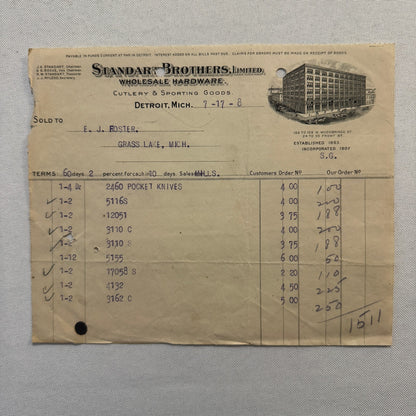 PAYABLE IN FUNDS CURRENT AT PAR IN DETROIT. INTEREST ADDED ON ALL BILLS PAST DUE. CLAIMS FOR ERRORS MUST BE MADE ON RECEIPT OF GOODS.
STANDART BROTHERS, LIMITED,
WHOLESALE HARDWARE.
CUTLERY & SPORTING GOODS.
DETROIT, MICH. 7-17-8
SOLD TO
E. J. FOSTER,
GRASS LAKE, MICH.
ESTABLISHED 1863.
INCORPORATED 1907
S.G.
TERMS 60 DAYS 2 percent for cash 10 days. Salesman MILLS. Customers Order Nº Our Order Nº
1-4 Dz 2460 POCKET KNIVES 4 00 100
1-2 5116S 4 00 200
1-2 12051 3 75 188
1-2 3110 C 4 00 200
1-2 3110 S 3 75 188
1-12 5155 6 00 50
1-2 17058 S 2 20 110
1-2 4132 4 50 225
1-2 3162 C 5 00 250
1511